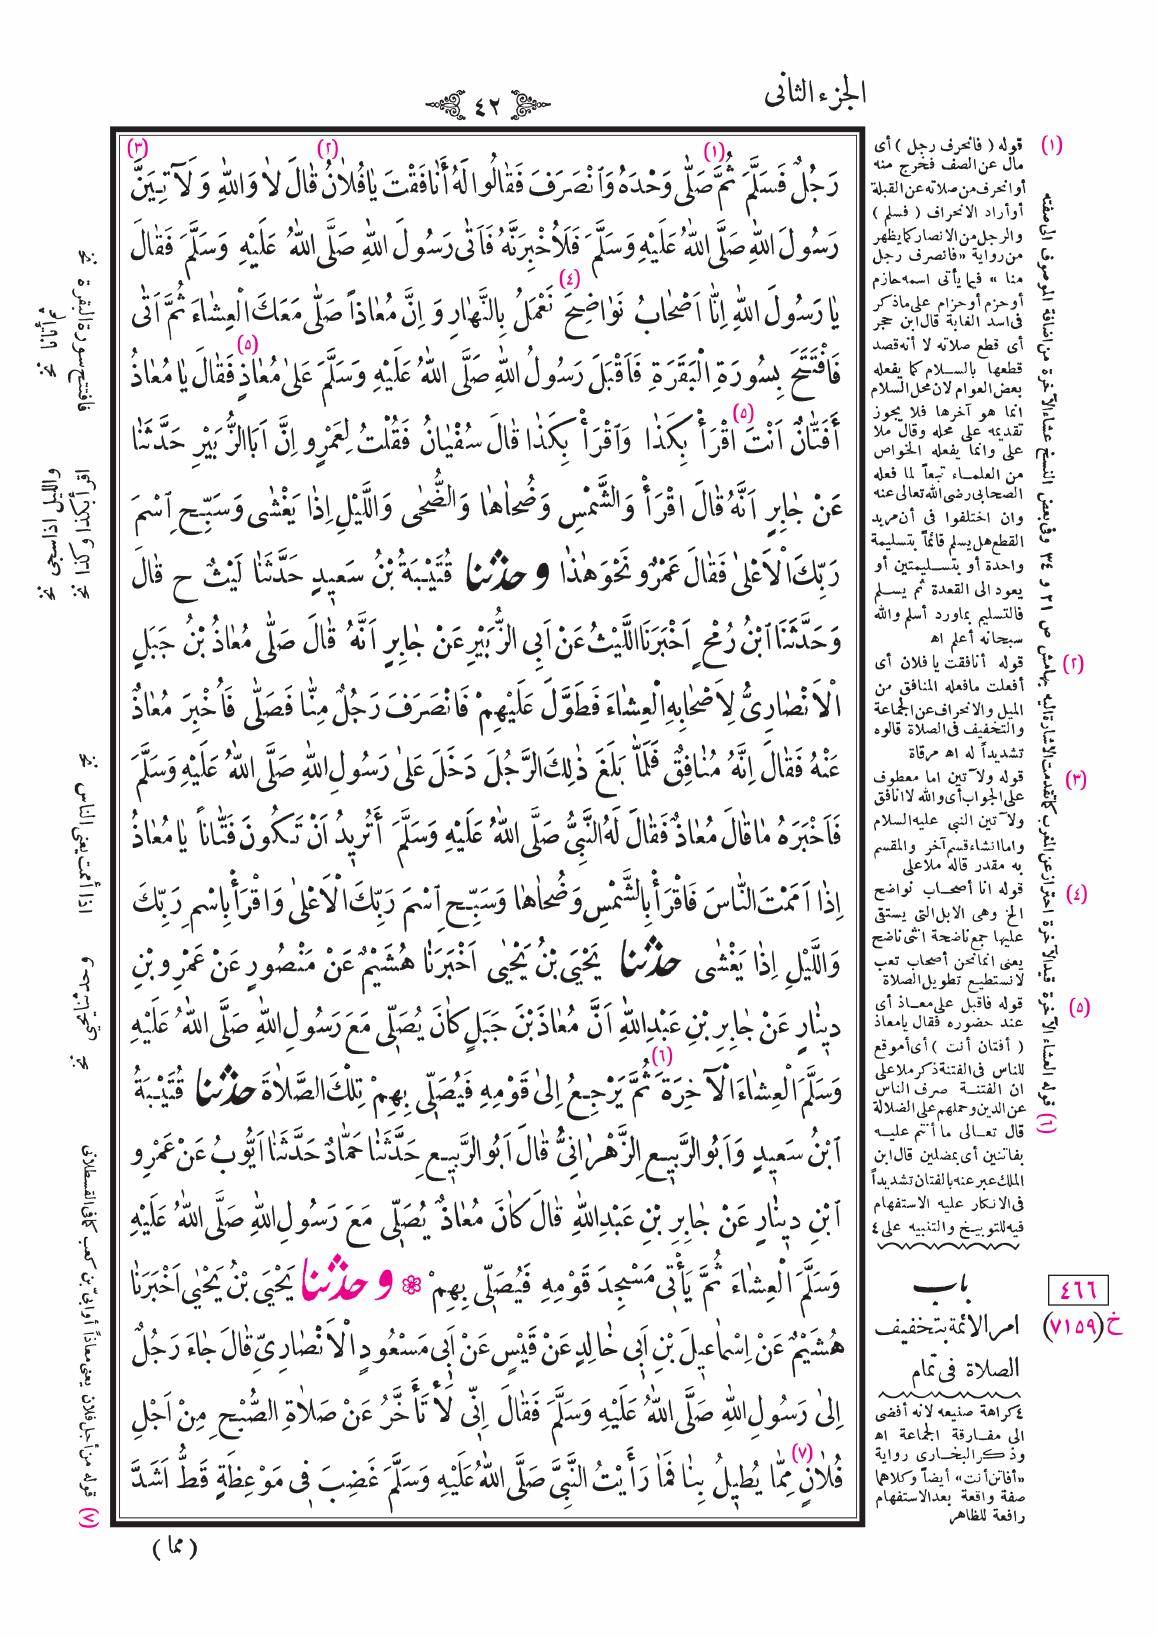 الجزء الثانى
٤٢
(١) (٢) (٣)
رَجُلٌ فَسَلَّمَ ثُمَّ صَلَّى وَحْدَهُ وَانْصَرَفَ فَقَالُوا لَهُ أَنَافَقْتَ يَا فُلَانُ قَالَ لَا وَاللهِ وَ لَآتِيَنَّ
رَسُولَ اللهِ صَلَّى اللهُ عَلَيْهِ وَسَلَّمَ فَلَأُخْبِرَنَّهُ فَاَتَى رَسُولَ اللهِ صَلَّى اللهُ عَلَيْهِ وَسَلَّمَ فَقَالَ
(٤)
يَا رَسُولَ اللهِ اِنَّا اَصْحَابُ نَوَاضِحَ نَعْمَلُ بِالنَّهَارِ وَ اِنَّ مُعَاذاً صَلَّى مَعَكَ الْعِشَاءَ ثُمَّ اَتَى
(٥)
فَافْتَتَحَ بِسُورَةِ الْبَقَرَةِ فَاَقْبَلَ رَسُولُ اللهِ صَلَّى اللهُ عَلَيْهِ وَسَلَّمَ عَلَى مُعَاذٍ فَقَالَ يَا مُعَاذُ
(٥)
أَفَتَّانٌ اَنْتَ اقْرَأْ بِكَذَا وَاقْرَأْ بِكَذَا قَالَ سُفْيَانُ فَقُلْتُ لِعَمْرٍو اِنَّ اَبَا الزُّبَيْرِ حَدَّثَنَا
عَنْ جَابِرٍ اَنَّهُ قَالَ اقْرَأْ وَالشَّمْسِ وَضُحَاهَا وَالضُّحَى وَاللَّيْلِ اِذَا يَغْشَى وَسَبِّحِ اسْمَ
رَبِّكَ الْاَعْلَى فَقَالَ عَمْرٌو نَحْوَ هَذَا و حدثنا قُتَيْبَةُ بْنُ سَعِيدٍ حَدَّثَنَا لَيْثٌ ح قَالَ
وَحَدَّثَنَا ابْنُ رُمْحٍ اَخْبَرَنَا اللَّيْثُ عَنْ اَبِي الزُّبَيْرِ عَنْ جَابِرٍ اَنَّهُ قَالَ صَلَّى مُعَاذُ بْنُ جَبَلٍ
الْاَنْصَارِىُّ لِاَصْحَابِهِ الْعِشَاءَ فَطَوَّلَ عَلَيْهِمْ فَانْصَرَفَ رَجُلٌ مِنَّا فَصَلَّى فَاُخْبِرَ مُعَاذٌ
عَنْهُ فَقَالَ اِنَّهُ مُنَافِقٌ فَلَمَّا بَلَغَ ذَلِكَ الرَّجُلَ دَخَلَ عَلَى رَسُولِ اللهِ صَلَّى اللهُ عَلَيْهِ وَسَلَّمَ
فَاَخْبَرَهُ مَا قَالَ مُعَاذٌ فَقَالَ لَهُ النَّبِىُّ صَلَّى اللهُ عَلَيْهِ وَسَلَّمَ أَتُرِيدُ اَنْ تَكُونَ فَتَّاناً يَا مُعَاذُ
اِذَا اَمَمْتَ النَّاسَ فَاقْرَأْ بِالشَّمْسِ وَضُحَاهَا وَسَبِّحِ اسْمَ رَبِّكَ الْاَعْلَى وَاقْرَأْ بِاسْمِ رَبِّكَ
وَاللَّيْلِ اِذَا يَغْشَى حدثنا يَحْيَى بْنُ يَحْيَى اَخْبَرَنَا هُشَيْمٌ عَنْ مَنْصُورٍ عَنْ عَمْرِو بْنِ
دِينَارٍ عَنْ جَابِرِ بْنِ عَبْدِ اللهِ اَنَّ مُعَاذَ بْنَ جَبَلٍ كَانَ يُصَلِّى مَعَ رَسُولِ اللهِ صَلَّى اللهُ عَلَيْهِ
(٦)
وَسَلَّمَ الْعِشَاءَ الْآخِرَةَ ثُمَّ يَرْجِعُ اِلَى قَوْمِهِ فَيُصَلِّى بِهِمْ تِلْكَ الصَّلَاةَ حدثنا قُتَيْبَةُ
ابْنُ سَعِيدٍ وَاَبُو الرَّبِيعِ الزَّهْرَانِىُّ قَالَ اَبُو الرَّبِيعِ حَدَّثَنَا حَمَّادٌ حَدَّثَنَا اَيُّوبُ عَنْ عَمْرِو
ابْنِ دِينَارٍ عَنْ جَابِرِ بْنِ عَبْدِ اللهِ قَالَ كَانَ مُعَاذٌ يُصَلِّى مَعَ رَسُولِ اللهِ صَلَّى اللهُ عَلَيْهِ
وَسَلَّمَ الْعِشَاءَ ثُمَّ يَأْتِى مَسْجِدَ قَوْمِهِ فَيُصَلِّى بِهِمْ و حدثنا يَحْيَى بْنُ يَحْيَى اَخْبَرَنَا
هُشَيْمٌ عَنْ اِسْمَاعِيلَ بْنِ اَبِى خَالِدٍ عَنْ قَيْسٍ عَنْ اَبِى مَسْعُودٍ الْاَنْصَارِىِّ قَالَ جَاءَ رَجُلٌ
اِلَى رَسُولِ اللهِ صَلَّى اللهُ عَلَيْهِ وَسَلَّمَ فَقَالَ اِنِّى لَأَتَأَخَّرُ عَنْ صَلَاةِ الصُّبْحِ مِنْ اَجْلِ
(٧)
فُلَانٍ مِمَّا يُطِيلُ بِنَا فَمَا رَأَيْتُ النَّبِىَّ صَلَّى اللهُ عَلَيْهِ وَسَلَّمَ غَضِبَ فِى مَوْعِظَةٍ قَطُّ اَشَدَّ
( مما )
(١) قوله ( فانحرف رجل ) أى
مال عن الصف فخرج منه
أو انحرف من صلاته عن القبلة
أو أراد الانحراف ( فسلم )
والرجل من الانصار كما يظهر
من رواية «فانصرف رجل
منا » فيما يأتى اسمه حازم
أو حزم أو حزام على ما ذكر
فى اسد الغابة قال ابن حجر
أى قطع صلاته لا أنه قصد
قطعها بالسلام كما يفعله
بعض العوام لان محل السلام
انما هو آخرها فلا يجوز
تقديمه على محله وقال ملا
على وانما يفعله الخواص
من العلماء تبعاً لما فعله
الصحابى رضى الله تعالى عنه
وان اختلفوا فى أن مريد
القطع هل يسلم قائماً بتسليمة
واحدة أو بتسليمتين أو
يعود الى القعدة ثم يسلم
فالتسليم بماورد أسلم والله
سبحانه أعلم اه
(٢) قوله أنافقت يا فلان أى
أفعلت ما فعله المنافق من
الميل والانحراف عن الجماعة
والتخفيف فى الصلاة قالوه
تشديداً له اه مرقاة
(٣) قوله ولآتين اما معطوف
على الجواب أى والله لا انافق
ولآتين النبى عليه السلام
واما انشاء قسم آخر والمقسم
به مقدر قاله ملا على
(٤) قوله انا أصحاب نواضح
الخ وهى الابل التى يستقى
عليها جمع ناضحة انثى ناضح
يعنى انما نحن أصحاب تعب
لا نستطيع تطويل الصلاة
(٥) قوله فاقبل على معاذ أى
عند حضوره فقال يا معاذ
( أفتان أنت ) أى أموقع
للناس فى الفتنة ذكر ملا على
ان الفتنة صرف الناس
عن الدين وحملهم على الضلالة
قال تعالى ما أنتم عليه
بفاتنين أى بمضلين قال ابن
الملك عبر عنه بالفتان تشديداً
فى الانكار عليه الاستفهام
فيه للتوبيخ والتنبيه على ٤
باب
٤٦٦
امر الائمة بتخفيف
خ (٧١٥٩)
الصلاة فى تمام
٤ كراهة صنيعه لانه أفضى
الى مفارقة الجماعة اه
وذكر البخارى رواية
«أفاتن أنت» أيضاً وكلاهما
صفة واقعة بعد الاستفهام
رافعة للظاهر
(٦) قوله العشاء الآخرة قيد الآخرة احتراز عن المغرب كما تقدمت الاشارة اليه بهامش ص ٢١ و ٣٤ وفى بعض النسخ عشاء الآخرة من اضافة الموصوف الى صفته
فافتتح سورة البقرة نخ
ثم أتانا نخ
اقرأ بكذا وكذا نخ
والليل اذا سجى نخ
اذا أممت يعنى الناس نخ
(٧) قوله من أجل فلان يعنى معاذاً أو ابىّ بن كعب كما فى القسطلانى